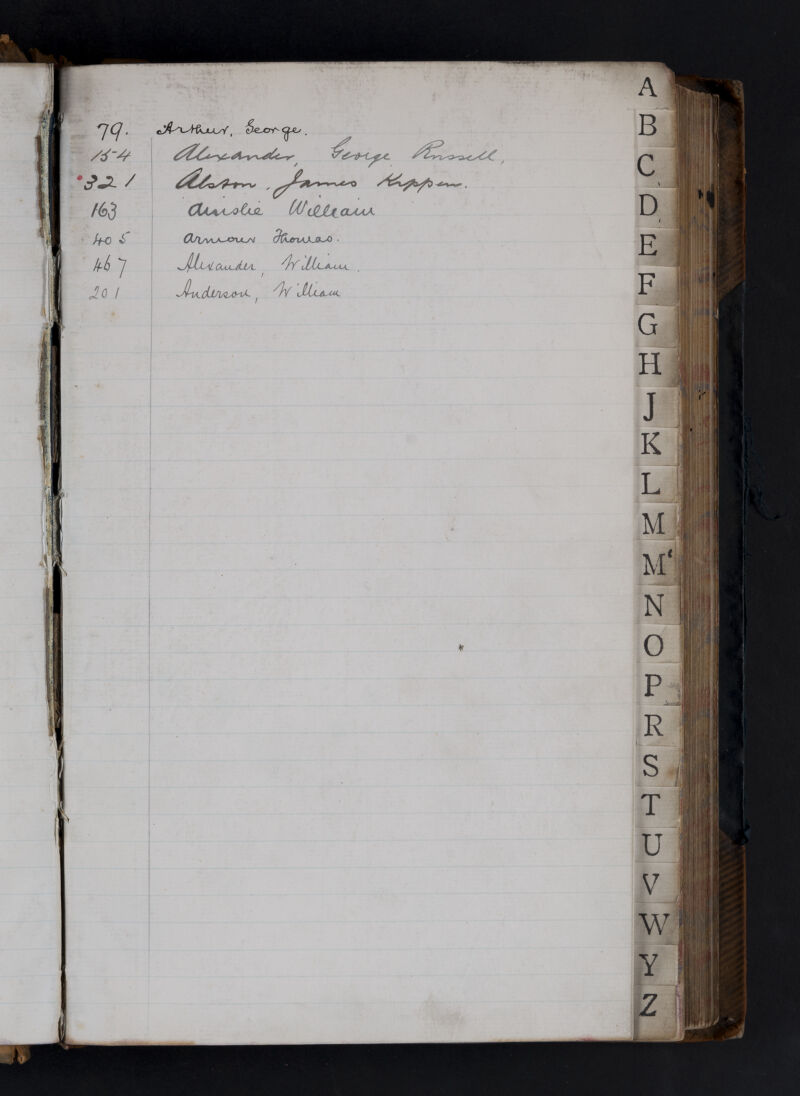 79. Arthur, George.
154 Alexander, George Russell,
321 Alston, James Kippen.
163 Ainslie William
405 Armour Thomas.
467 Alexander, William.
201 Anderson, William
A
B
C
D
E
F
G
H
J
K
L
M
Mc
N
O
P
R
S
T
U
V
W
Y
Z